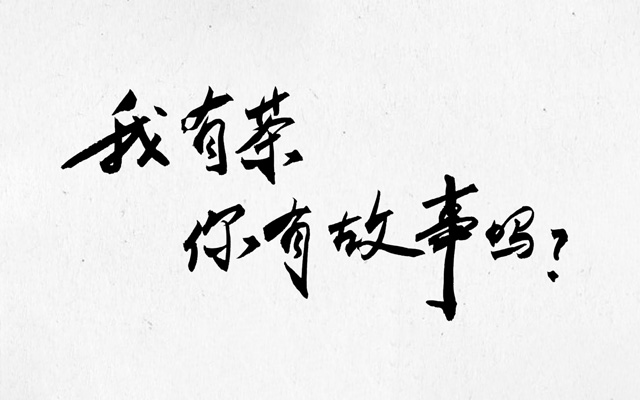 我有茶
你有故事吗?